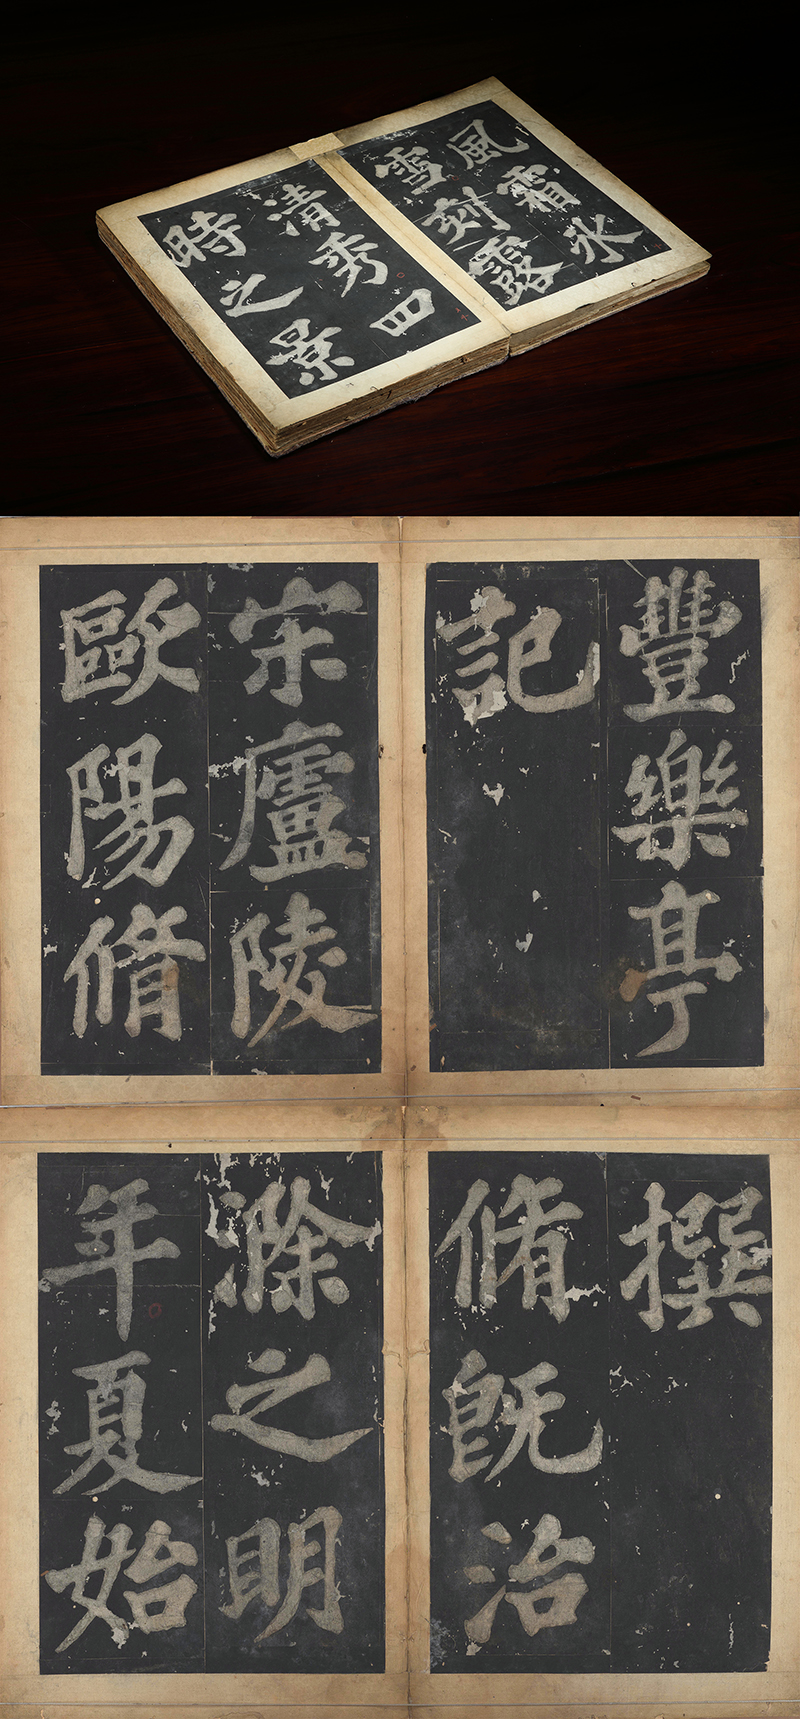 風霜氷
雪刻露
清秀四
時之景
豐樂亭
記
宋廬陵
歐陽脩
撰
脩既治
滁之明
年夏始